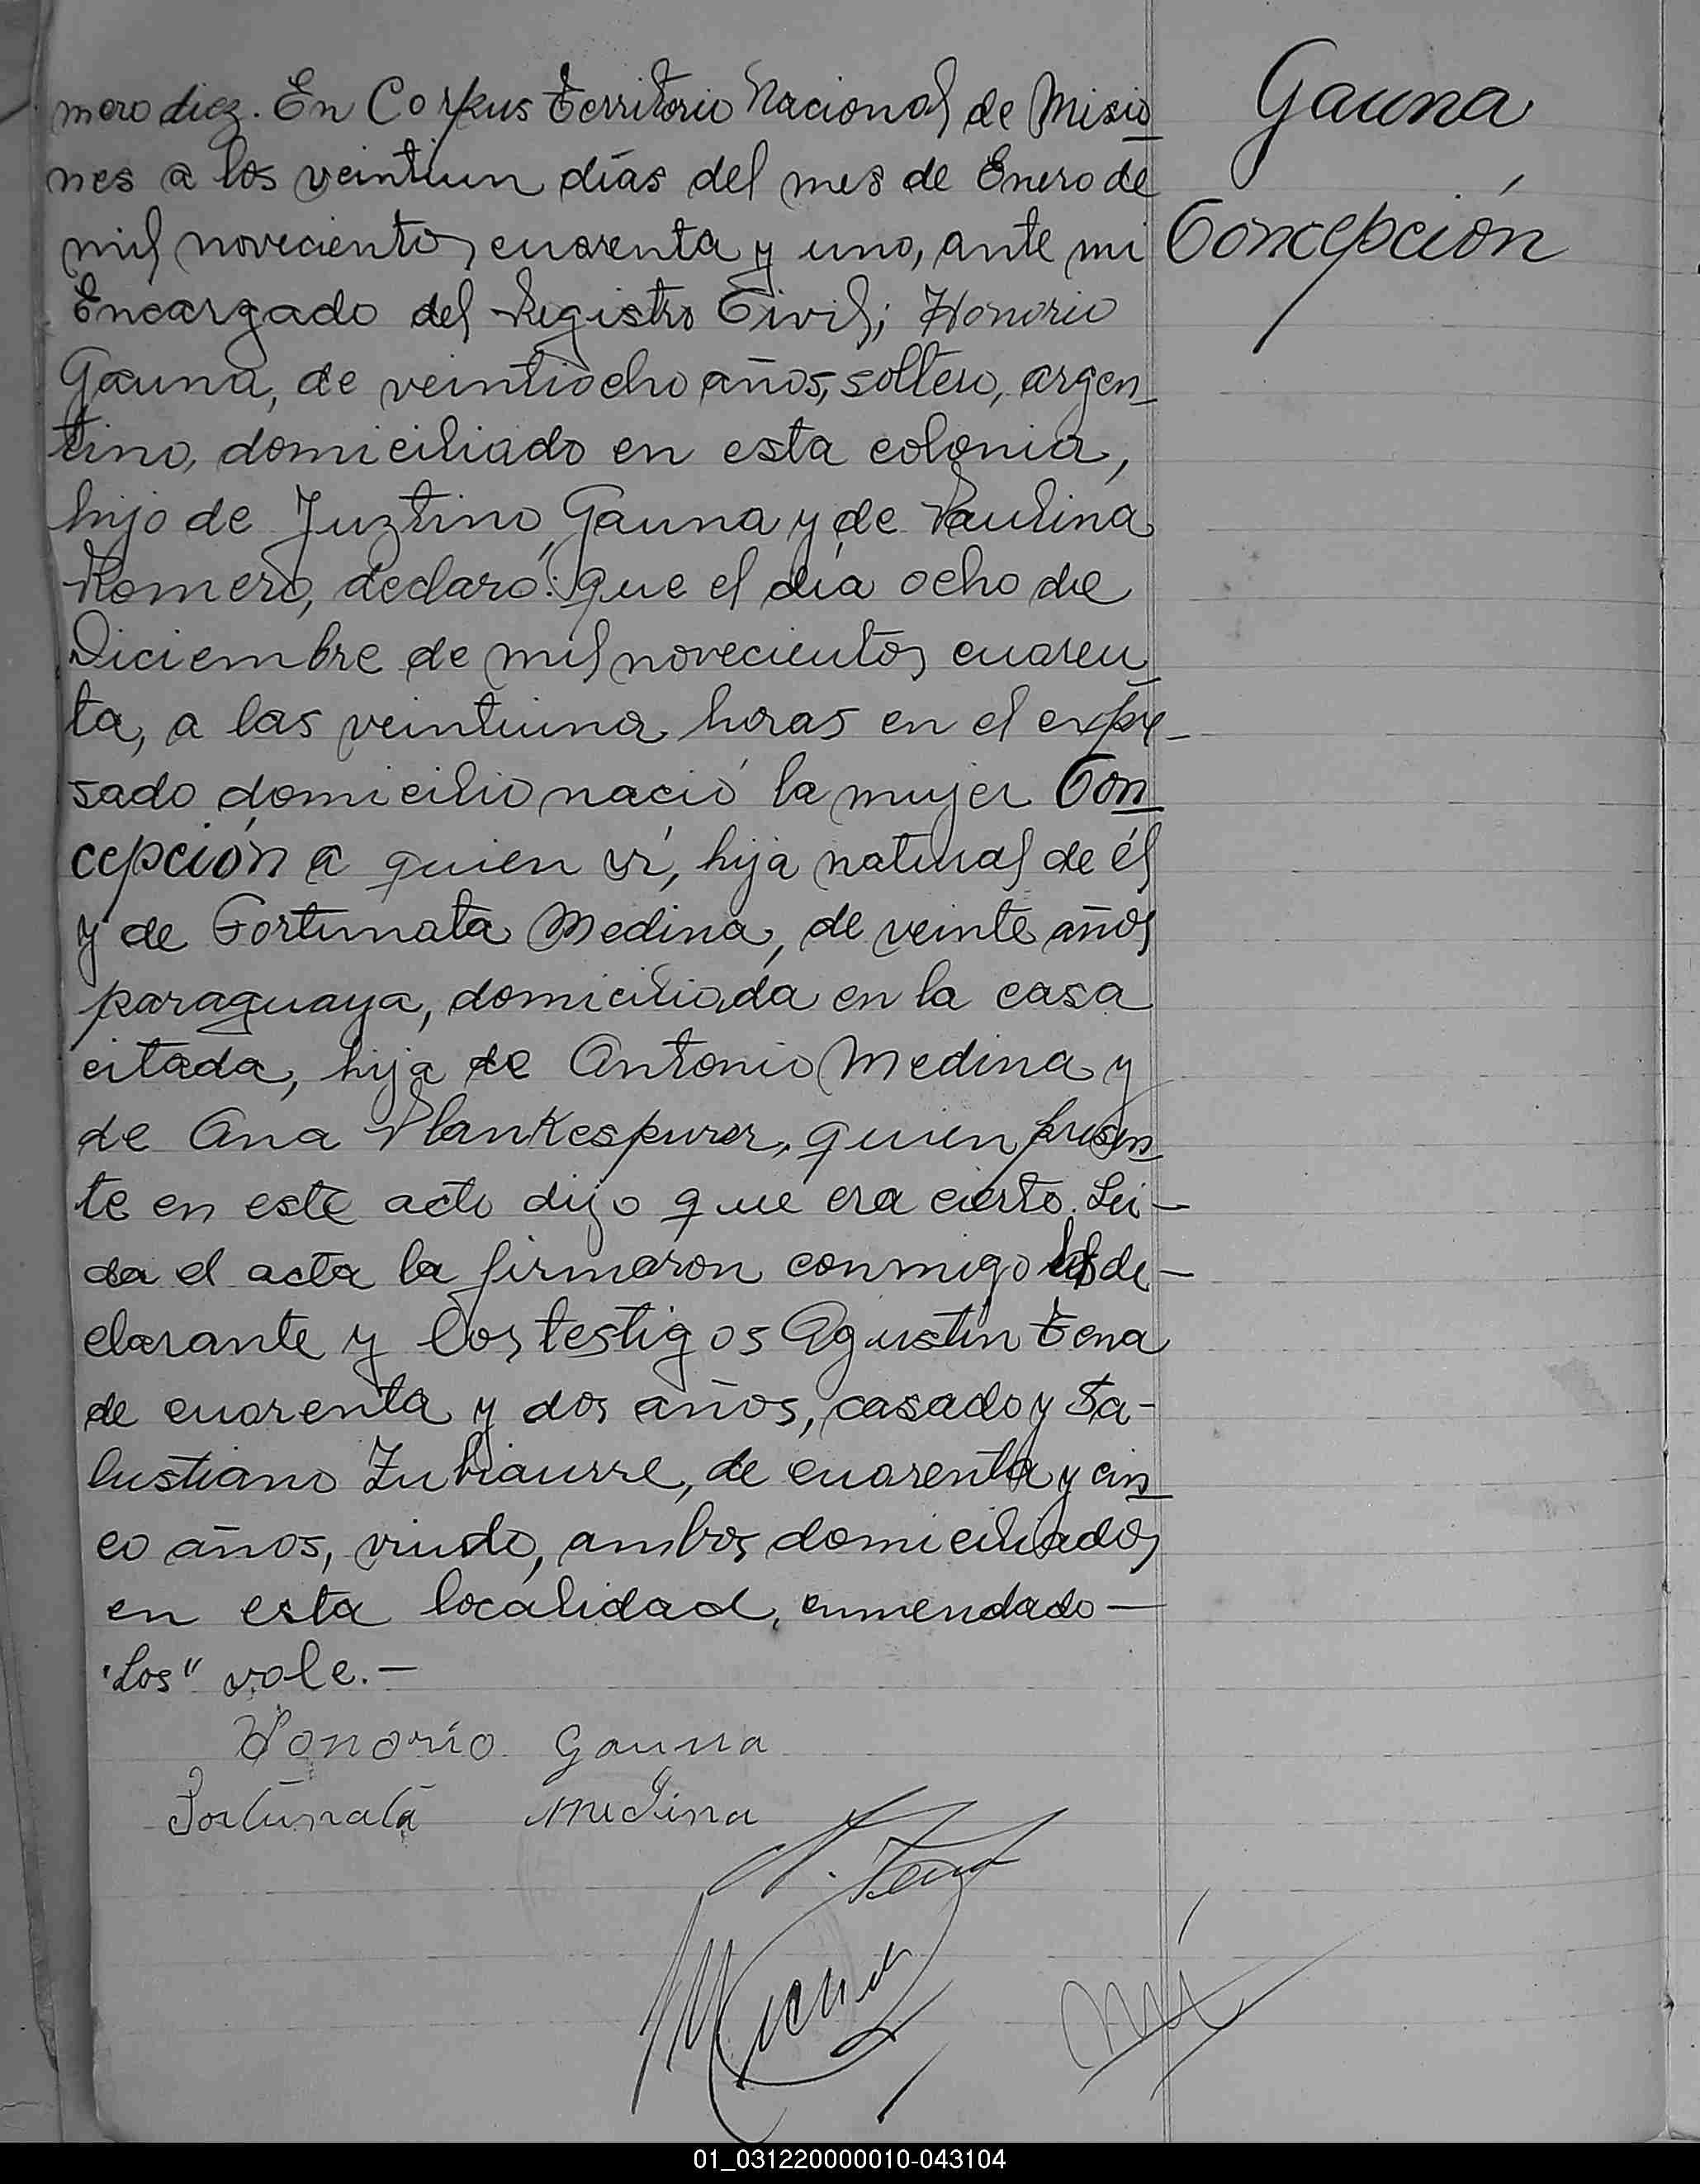 mero diez. En Corpus Territorio Nacional de Misio
nes a los veintiun días del mes de Enero de
mil novecientos cuarenta y uno, ante mi
Encargado del Registro Civil; Honorio
Gauna, de veintiocho años, soltero, argen
tino, domiciliado en esta colonia,
hijo de Juztino Gauna y de Paulina
Romero, declaró: que el día ocho de
Diciembre de mil novecientos cuaren
ta, a las veintiuna horas en el expre-
sado domicilio nació la mujer Con
cepción a quien ví, hija natural de él
y de Fortunata Medina, de veinte años
paraguaya, domiciliada en la casa
citada, hija de Antonio Medina y
de Ana, quien presen
te en este acto dijo que era cierto. Lei-
da el acta la firmaron conmigo los de-
clarante y los testigos Agustín Tena
de cuarenta y dos años, casado y Sa-
lustiano Zubiaurre, de cuarenta y cin
co años, viudo, ambos domiciliados
en esta localidad, enmendado—
"Los" vale.—
Honorio Gauna
Fortunata Medina
A. Tena
Gauna
Concepción
01_031220000010-043104